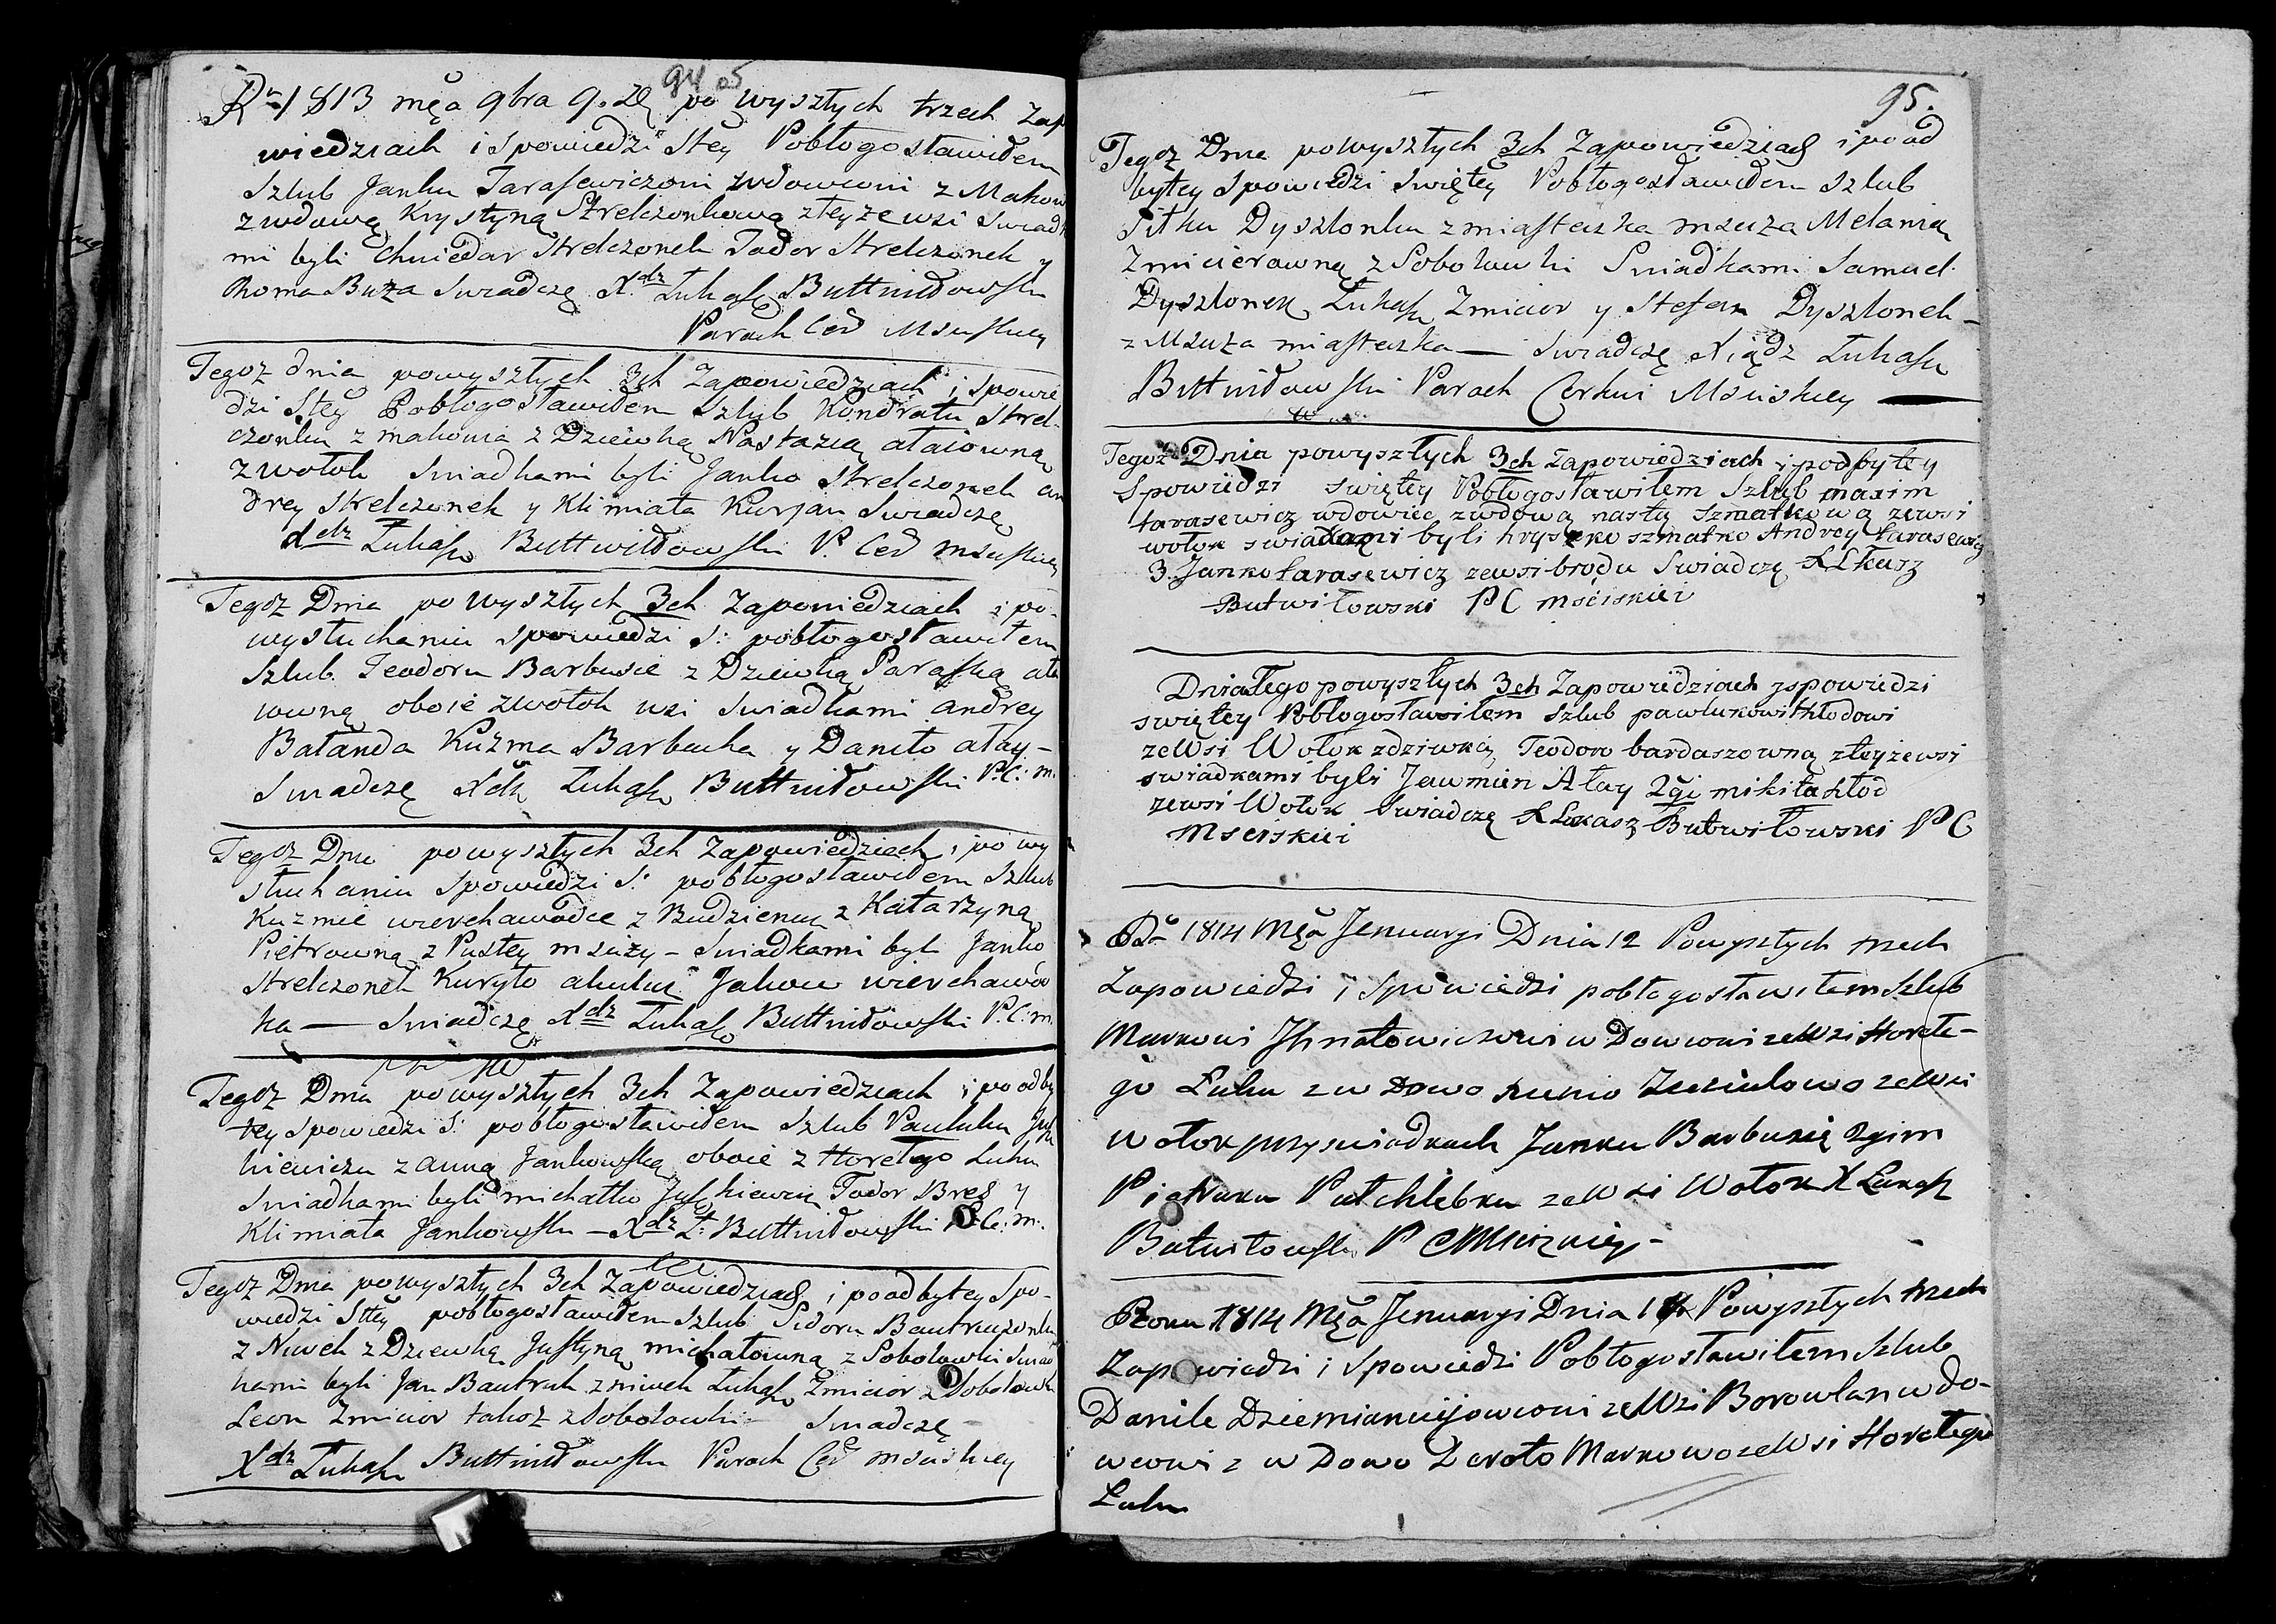 94
Rū 1813 mca 9bra 9. dn po wyszłych trzech Zap
wiedziach i Spowiedzi Stey Pobłogosławiłem
Szlub Janku Tarasewiczowi wdowcowi z Makow
z wdową Krystyną Strelczonkową z teyze wsi Swiadk
mi byli Chwiedar Strelczonek Todor Strelczonek y
Roma Buza Swiadczę X.dz Łukasz Buttwiłowski
Paroch Cer Msciskiey
Tegoz dnia powyszłych 3ch Zapowiedziach i Spowie
dzi Stey Pobłogosławiłem Szlub Kondratu Strel-
czonku z makowia z Dziewką Nastazią ataiowną
z wołok Swiadkami byli Janko Strelczonek an
drey Strelczonek y Klimiata Kurjan Swiadczę
Xdz Łukasz Buttwiłowski P. Cer msciskiey
Tegoz Dnia po wyszłych 3ch Zapowiedziach i po-
wysłuchaniu spowiedzi S: pobłogosławiłem
Szlub Teodoru Barbusie z Dziewką Paraską ata
iowną oboie zwołok wsi Swiadkami andrey
Bałanda Kuzma Barbucha y Daniło atay-
Swiadczę Xdz Łukasz Buttwiłowski P.C: m.
Tegoz Dnia powyszłych 3ch Zapowiedziach i po wy
słuchaniu Spowiedzi S: pobłogosławiłem Szlub
Kuzmie wierchawodce z Budzienicz z Katarzyną
Pietrowną z Pustey mszizy - Swiadkami byli Janko
Strelczonek Kuryło Jakow wierchawod
ka — Swiadczę Xdz Łukasz Buttwiłowski P.C:m.
Tegoz Dnia powyszłych 3ch Zapowiedziach i po odby
tey spowiedzi S: pobłogosławiłem Szlub Pauluku Jusz
kiewiczu z anną Jankowską oboie z Horełego Łuhu
Swiadkami byli michałko Juszkiewicz Todor Bres y
Klimiata Jankowski - Xdz Ł: Buttwiłowski P:C: m:
Tegoz Dnia powyszłych 3ch Zapowiedziach i po odbytey Spo-
wiedzi Stey pobłogosławiłem Szlub Sidoru Bautruczonku
z Niwek z Dziewką Justyną michałowną z Sobolowki Swiad
kami byli Jan Bautruk z niwek Łukasz Zmicior z Sobolowki
Leon Zmicior takoz z Sobolowki Swiadczę -
Xdz Łukasz Buttwiłowski Paroch Cer msciskiey
95.
Tegoz Dnia powyszłych 3ch Zapowiedziach i po od
bytey Spowiedzi Swiętey Pobłogosławiłem Szlub
Titku Dyszlonku z miasteczka mziuza Melanią
Zmicierowną z Sobolowki Swiadkami Samuel
Dyszlonek, Łukasz Zmicior y Stefan Dyszlonek -
z Mziuza miasteczka — Swiadczę Xiądz Łukasz
Buttwiłowski Paroch Cerkwi Msciskiey —
Tegoz Dnia powyszłych 3ch Zapowiedziach i pood bytey
Spowiedzi swiętey Pobłogosławiłem Szlub maxim
tarasewicz wdowiec zwdową nastą szmatkową zewsi
wołok swiadkami byli hryszko szmatko Andrey tarasewicz
3. Janko tarasewicz zewsi brodu Swiadczę X Łkasz
Butwiłowski P C mściskiei
Dnia tego powyszłych 3ch Zapowiedziach yspowiedzi
swiętey Pobłogosławiłem szlub pawlukowi kłodowi
zewsi Wołok zdziwką Teodoro bardaszowną zteyzewsi
swiadkami byli Jawmien Ałay 2gi mikita kłod
zewsi Wołok Swiadczę X Łukasz Butwiłowski P C
Msciskiei
Ru 1814 Mca Jenuaryi Dnia 12 Powyszłych trzech
Zapowiedzi i Spowiedzi pobłogosławiłem Szlub
Markowi Ihnatowiczowi wDowcowi zeWsi Horełe-
go Łuhu z wDowo zeWsi
Wołok przyswiadkach Janku Barbuzię 2gim
Piatruku Putchlebku zeWsi Wołok X Łukasz
Butwiłowski P C Msciskiey-
Roku 1814 Mca Jenuaryi Dnia Powyszłych trzech
Zapowiedzi i Spowiedzi Pobłogosławiłem Szlub
Danile zeWsi Borowlan wDo-
wcowi z wDowo Markowo zeWsi Horełego
Łuhu